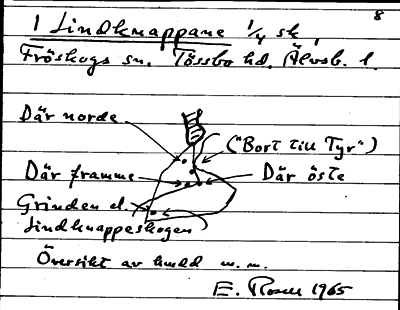 8
1 Lindknappane 1/4 sk,
Fröskogs sn. Tössbo hd. Älvsb. l.
Där norde
("Bort till Tyr")
Där framme
Där öste
Grinden el.
Lindknappeskogen
Översikt av hmdd m.m.
E. 1965